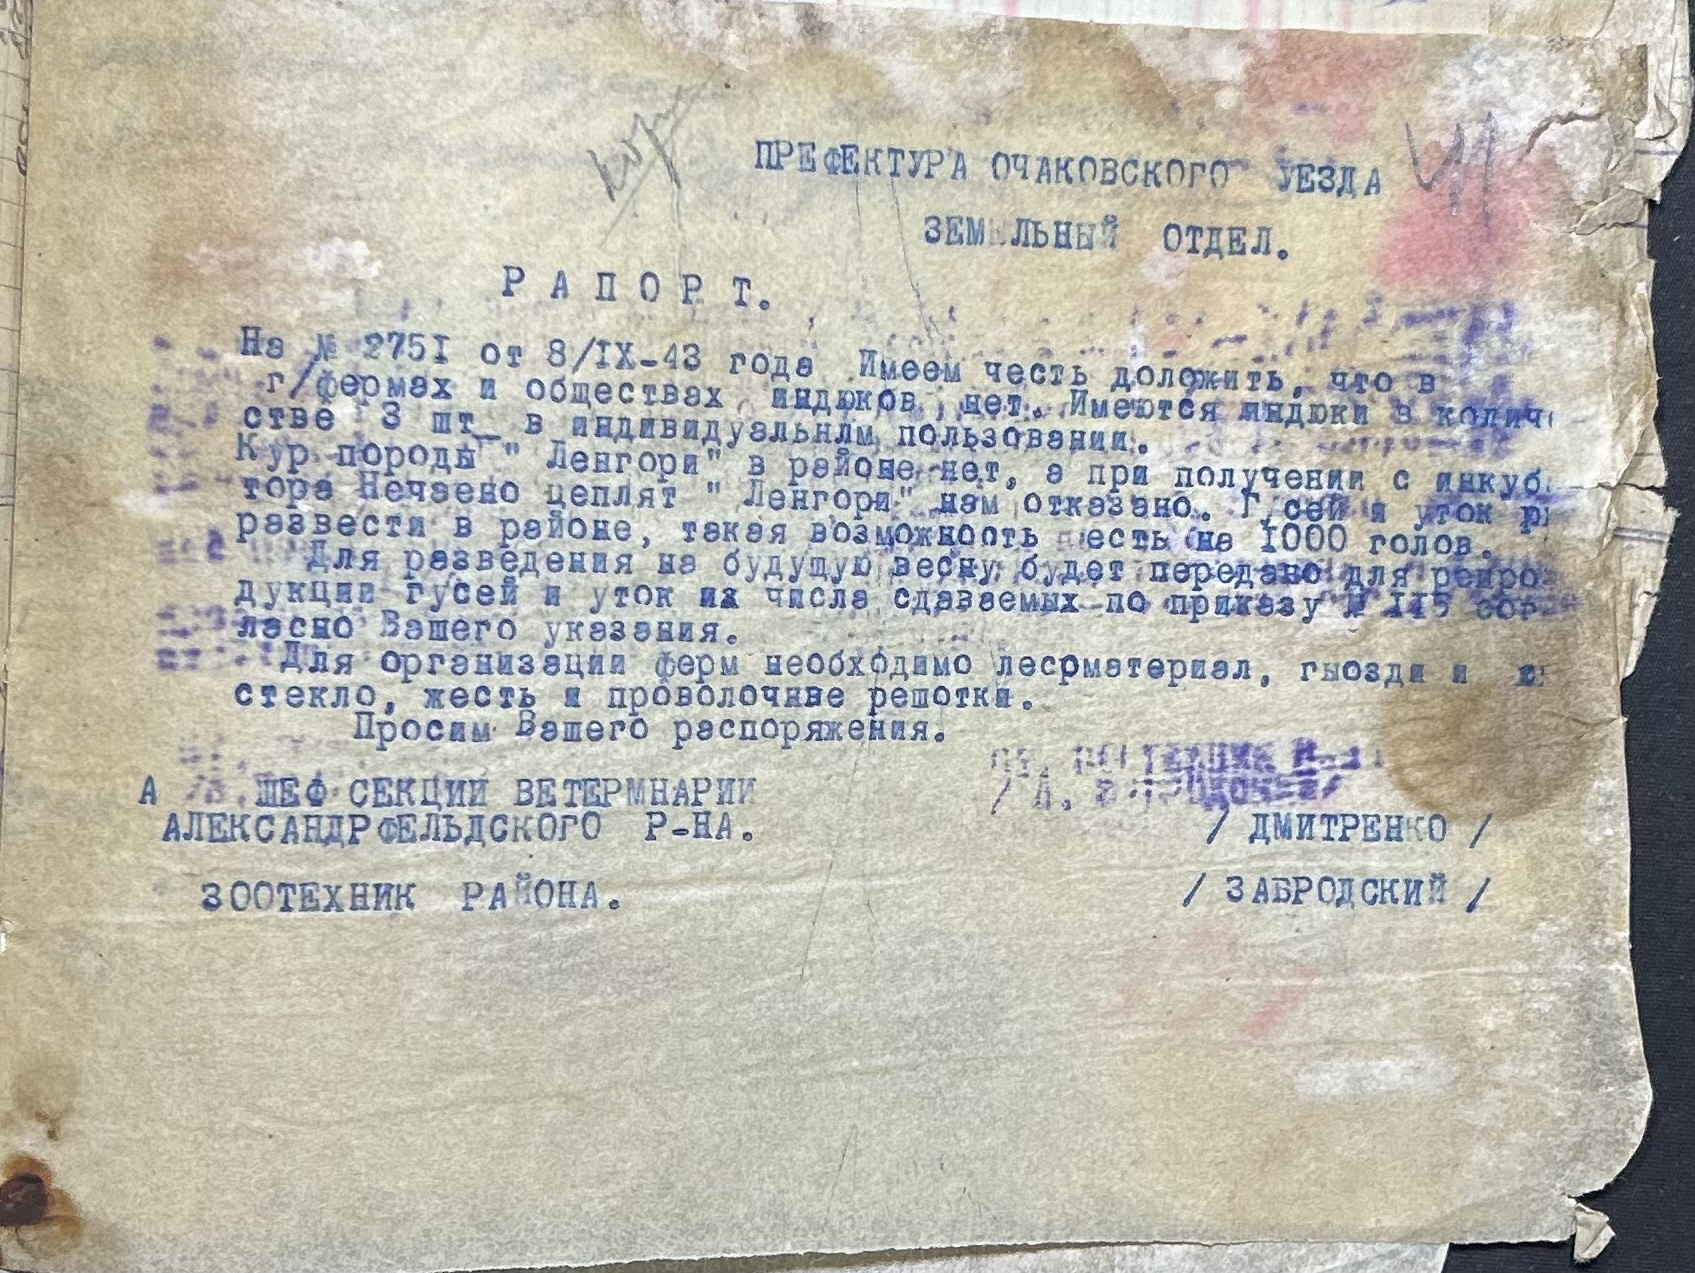 ПРЕФЕКТУРА ОЧАКОВСКОГО УЕЗДА
ЗЕМЕЛЬНЫЙ ОТДЕЛ.
Р А П О Р Т.
На № 2751 от 8/IX-43 года Имеем честь доложить, что в
г/фермах и обществах индюков нет. Имеются индюки в количе
стве 3 шт_ в индивидуальнлм пользовании.
Кур породы " Ленгорн" в районе нет, а при получении с инкуб
тора Нечаено цеплят " Ленгорн" нам отказано. Г сей и уток
развести в районе, такая возможность есть на 1000 голов.
Для разведения на будущую весну будет передано для репро
дукции гусей и уток их числа сдаваемых по приказу № 115 сог
ласно Вашего указания.
Для организации ферм необходимо лесрматериал, гвозди и
стекло, жесть и проволочные решотки.
Просим Вашего распоряжения.
А ШЕФ СЕКЦИИ ВЕТЕРМНАРИИ
АЛЕКСАНДРФЕЛЬДСКОГО Р-НА. / ДМИТРЕНКО /
ЗООТЕХНИК РАЙОНА. / ЗАБРОДСКИЙ /